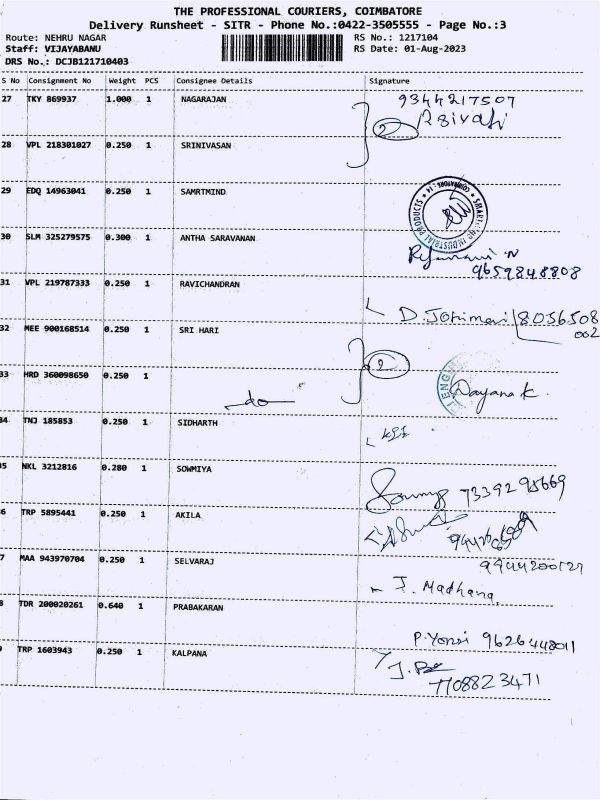 THE PROFESSIONAL COURIERS, COIMBATORE
Delivery Runsheet - SITR - Phone No.:0422-3505555 - Page No.:3
Route: NEHRU NAGAR RS No.: 1217104
Staff: VIJAYABANU RS Date: 01-Aug-2023
DRS No.: DCJB121710403
S No Consignment No Weight PCS Consignee Details Signature
27 TKY 869937 1.000 1 NAGARAJAN 9344217507
2
28 VPL 218301027 0.250 1 SRINIVASAN
29 EDQ 14963041 0.250 1 SAMRTMIND
30 SLM 325279575 0.300 1 ANTHA SARAVANAN
9659848808
31 VPL 219787333 0.250 1 RAVICHANDRAN
D. 8056508
002
32 MEE 900168514 0.250 1 SRI HARI
2
33 HRD 360098650 0.250 1
do Dayana K
34 TNJ 185853 0.250 1 SIDHARTH
35 NKL 3212816 0.280 1 SOWMIYA
7339295669
6 TRP 5895441 0.250 1 AKILA
9944200127
7 MAA 943970704 0.250 1 SELVARAJ
J. Madhana
8 TDR 200020261 0.640 1 PRABAKARAN
9626448011
9 TRP 1603943 0.250 1 KALPANA
7708823471